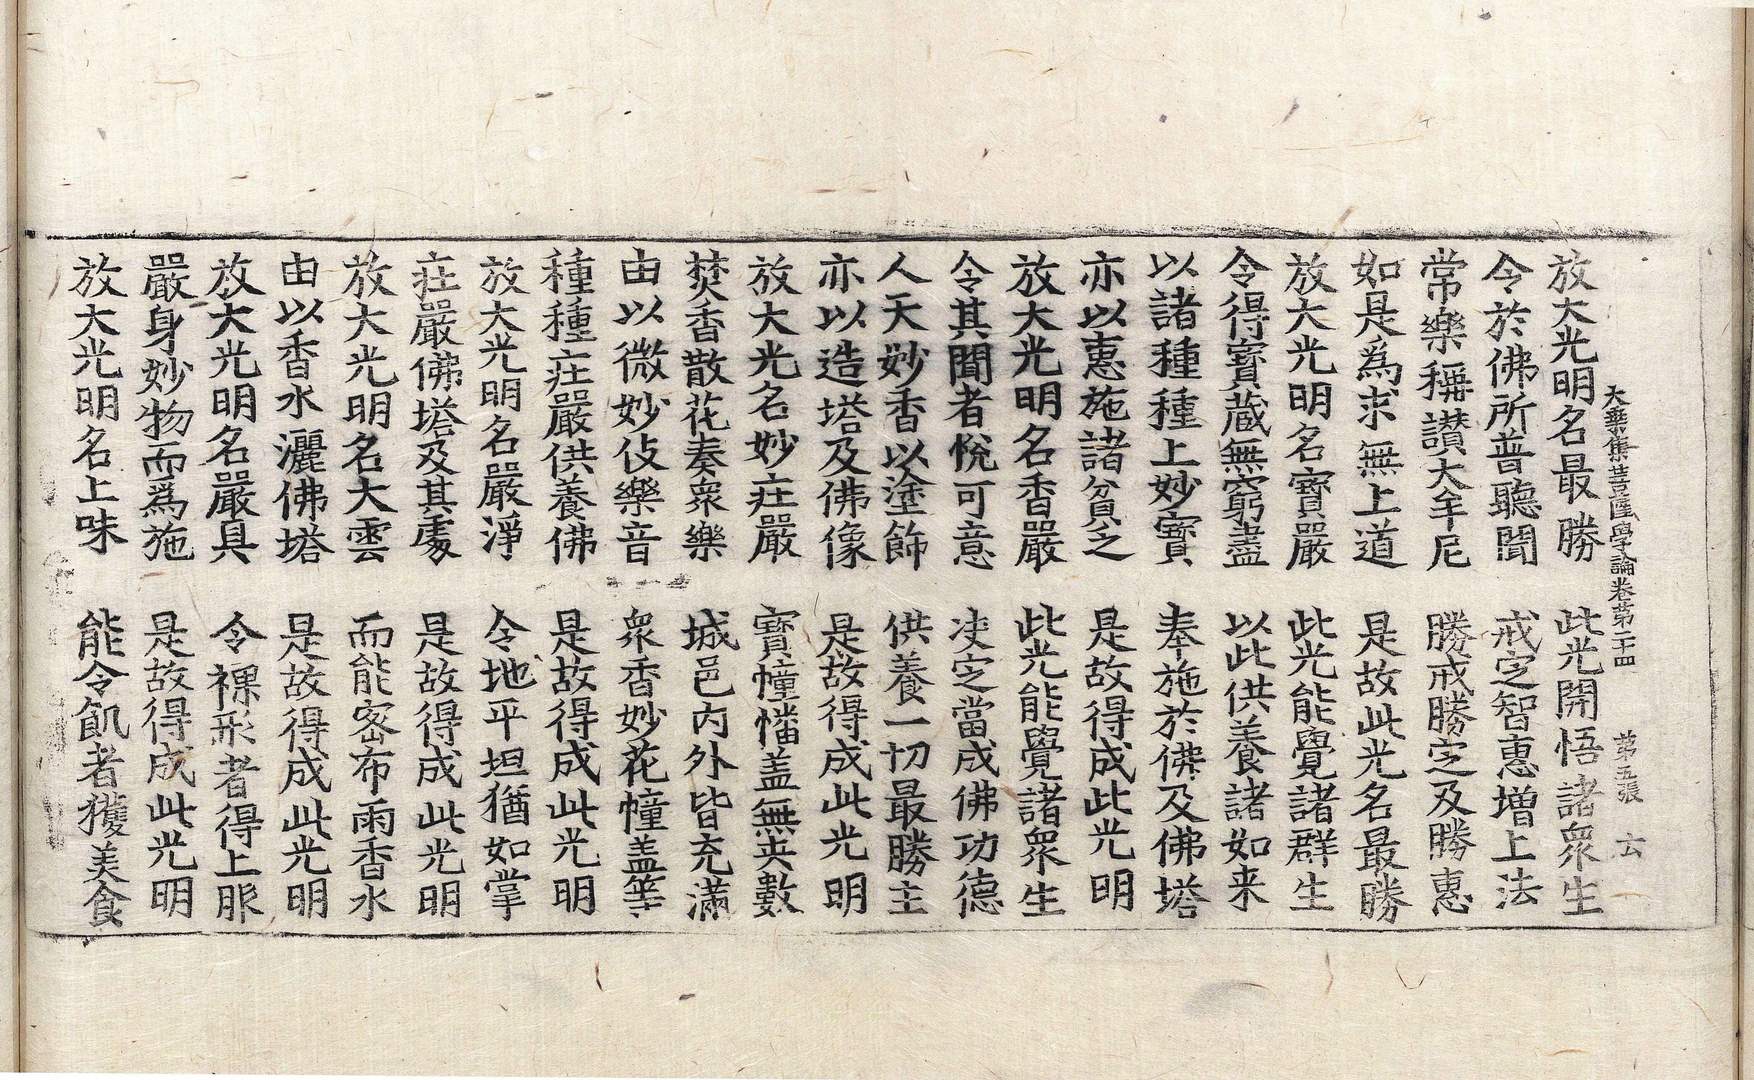 大乗集菩薩學論卷第二十四　第五張　云
放大光明名最勝　此光開悟諸衆生
令於佛所普聽聞　戒定智惠增上法
常樂稱讃大牟尼　勝戒勝定及勝惠
如是爲求無上道　是故此光名最勝
放大光明名寶嚴　此光能覺諸群生
令得寶蔵無窮盡　以此供養諸如来
以諸種種上妙寶　奉施於佛及佛塔
亦以惠施諸貧乏　是故得成此光明
放大光明名香嚴　此光能覺諸衆生
令其聞者悅可意　决定當成佛功德
人天妙香以塗飾　供養一切最勝主
亦以造塔及佛像　是故得成此光明
放大光名妙莊嚴　寶幢幡盖無央數
焚香散花奏衆樂　城邑内外皆充滿
由以微妙伎樂音　衆香妙花幢盖等
種種莊嚴供養佛　是故得成此光明
放大光明名嚴淨　令地平坦猶如掌
莊嚴佛塔及其處　是故得成此光明
放大光明名大雲　而能密布雨香水
由以香水灑佛塔　是故得成此光明
放大光明名嚴具　令裸形者得上服
嚴身妙物而爲施　是故得成此光明
放大光明名上味　能令飢者獲美食